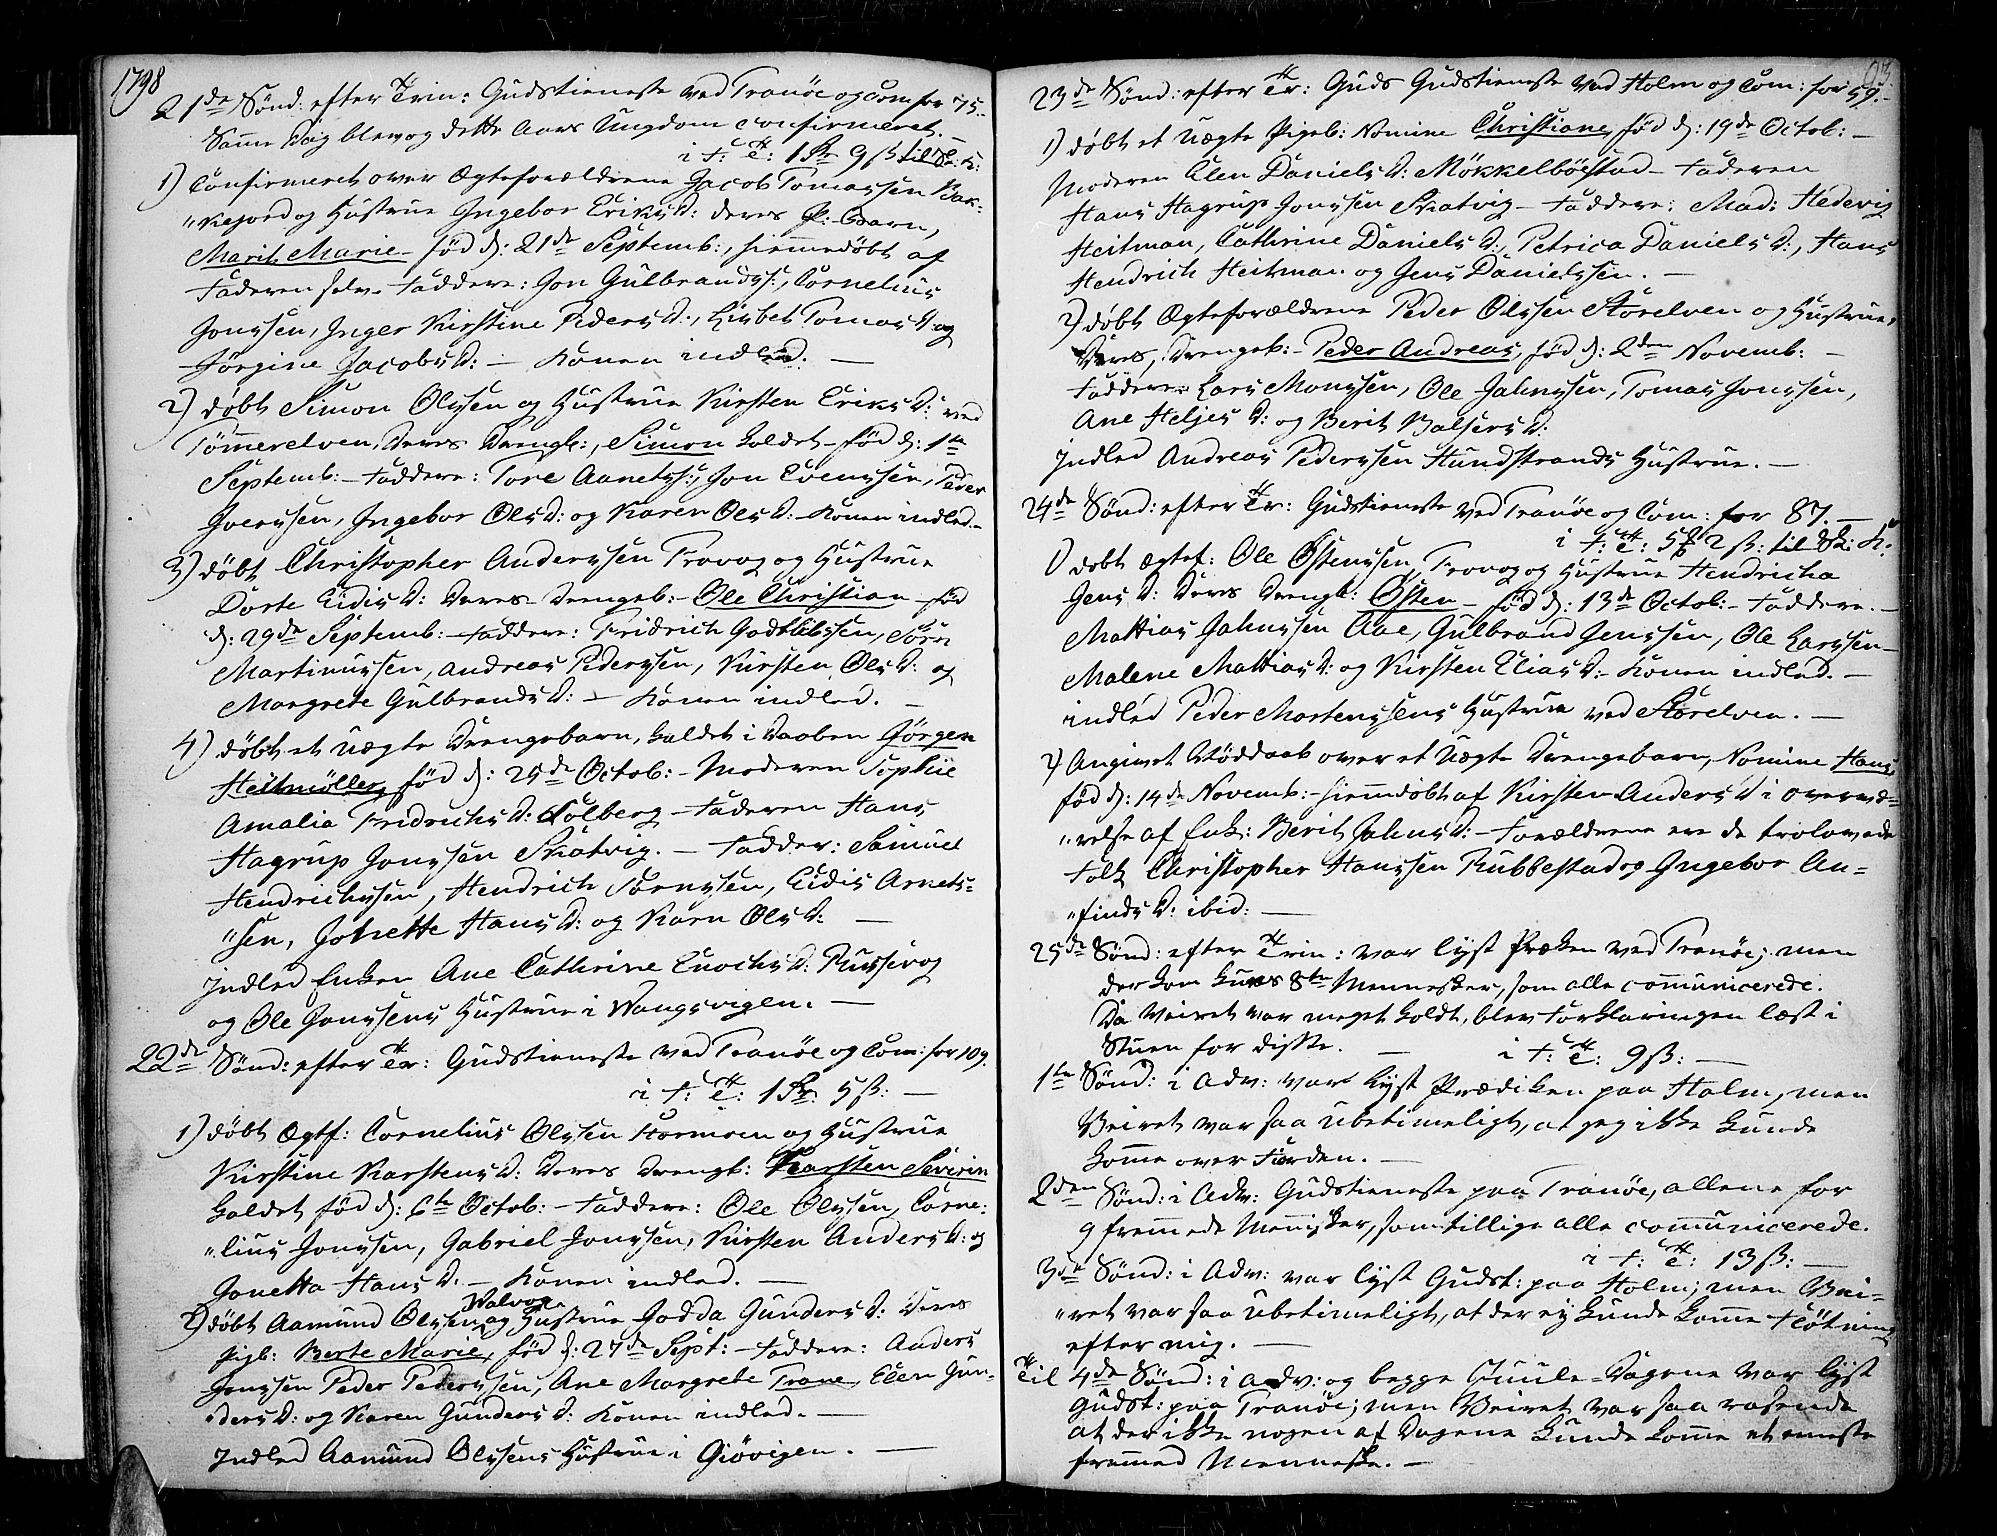 1798
21de Sønd: efter Trin: Gudstieneste ved Tranøe og Com for 75.
Samme Dag blev og dette Aars Ungdom confirmeret. –
i T: T: 1 9 ß til K:
1) Confirmeret over Ægteforældrene Jacob Tomassen Bak-
„kejord og Hustrue Ingebor Eriks D: deres P: Barn,
Marit Marie – fød d: 21de Septemb:, hiemmedøbt af
Faderen selv. Faddere: Jon Gulbrands:, Cornelius
Jonssen, Inger Kirstine Peders D:, Lisbet Tomas D: og
Jørgine Jacobs D: – Konen indled. –
2) døbt Simon Olssen og Hustrue Kirsten Eriks D: ved
Tømmerelven, deres Drengb:, Simon kaldet – fød d: 1te
Septemb: – Faddere: Tore Aanets:, Jon Evenssen, Peder
Iverssen, Ingebor Ols D: og Karen Ols D: – Konen indled. –
3) døbt Christopher Anderssen Trovog og Hustrue
Dorte Eidis D: deres Drengeb: – Ole Christian – fød
d: 29de Septemb: – Faddere: Fridrich Godtlibssen, Sørn
Martinussen, Andreas Pederssen, Kirsten Ols D: og
Margrete Gulbrands D: – Konen indled. –
4) døbt et uægte Drengebarn, kaldet i Daaben Jørgen
Heitmøller, fød d: 25de Octob: – Moderen Sophie
Amalia Fridrichs D: Colberg – Faderen Hans
Hagrup Jonssen Skatvig. – Fadder: Samuel
Hendrichssen, Hendrich Sørnssen, Eidis Arnets-
„sen, Johette Hans D: og Karn Ols D: –
Indled Enken Ane Cathrine Enochs D: Russevog
og Ole Jonssens Hustrue i Vangsvigen. –
22de Sønd: efter Tr: Gudstieneste ved Tranøe og Com: for 109.
i T: T: 1 5 ß: –
1) døbt Ægtf: Cornelius Olssen Stormoen og Hustrue
Kirstine Karstens D: deres Drengb: Karsten Severin
kaldet fød d: 6te Octob: – Faddere: Ole Olssen, Corne-
„lius Jonssen, Gabriel Jonssen, Kirsten Anders D: og
Jonetta Hans D: – Konen indled. –
Valvog
2) døbt Aamund Olssen og Hustrue Godda Gunders D: deres
Pigb: Berte Marie, fød d: 27de Sept: – Faddere: Anders
Jonssen Peder Pederssen, Ane Margrete Trane, Elen Gun-
„ders D: og Karen Gunders D: Konen indled. –
Indled Aamund Olssens Hustrue i Giøvigen. –
93
23de Sønd: efter Tr: Guds Gudstieneste ved Holm og Com: for 59. –
1) døbt et uægte Pigeb: Nomine Christiane, fød d: 19de Octob: –
Moderen Elen Daniels D: Møkkelbøstad – Faderen
Hans Hagrup Jonssen Skatvig – Faddere: Mad: Hedevig
Heitman, Cathrine Daniels D:, Petrica Daniels D:, Hans
Hendrich Heitman og Jens Danielssen. –
2) døbt Ægteforældrene Peder Olssen Storelven og Hustrues
Deres, Drengeb: – Peder Andreas, fød d: 2den Novemb: –
Faddere – Lars Monssen, Ole Jahnssen, Tomas Jonssen,
Ane Heljes D: og Berit Balsers D:
Indled Andreas Pederssen Hundstrands Hustrue. –
24de Sønd: efter Tr: Gudstieneste ved Tranøe og Com: for 87. –
i T: T: 5 2 ß: til K:
1) døbt Ægtef: Ole Østenssen, Trovog og Hustrue Hendricha
Jens D: deres Drengb: Østen – fød d: 13de Octob: – Faddere. –
Mattias Jahnssen Aae, Gulbrand Jenssen, Ole Larssen –
Malene Mattias D: og Kirsten Elias D: – Konen indled. –
indled Peder Mortenssens Hustrue ved Storelven. –
2) Angivet Nøddaab over et uægte Drengebarn, Nomine Hans,
fød d: 14de Novemb: – hiemdøbt af Kirsten Anders D i overvæ-
„relse af Enk: Berit Jahns D: – Forældrene ere de trolovede
Folk Christopher Hanssen Rubbestad og Ingebor An-
„finds D: ibid: –
25de Sønd: efter Trin: var lyst Præken ved Tranøe; men
der kom kuns 8te Mennesker, som alle communicerede.
Da Veiret var meget koldt, blev Forklaringen læst i
Stuen for disse. – i T: T: 9 ß: –
1te Sønd: i Adv: var lyst Prædiken paa Holm, men
Veiret var saa ubetimeligt, at jeg ikke kunde
komme over Fiorden. –
2den Sønd: i Adv: Gudstieneste paa Tranøe, allene for
9 fremmede Mennisker, som tillige alle communicerede.
i T: T: 13 ß: –
3de Sønd: i Adv: var lyst Gudst: paa Holm; men Vei-
„ret var saa ubetimeligt, at der ey kunde komme Fløtning
efter mig. –
Til 4de Sønd: i Adv: og begge Juule-Dagene var lyst
Gudst: paa Tranøe; men Veiret var saa rasende
at der ikke nogen af Dagene kunde komme et eneste
fremmed Menneske. –